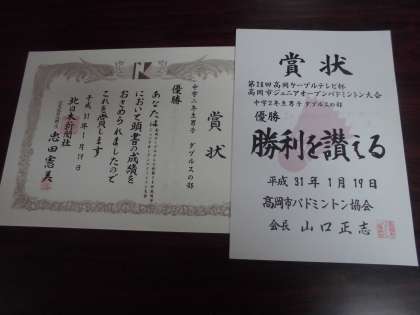 賞状
中学二年生男子 ダブルスの部
優勝
あなたは
において頭書の成績を
おさめられましたので
これを賞します
平成31年1月19日
北日本新聞社
忠田憲美
賞状
第28回高岡ケーブルテレビ杯
高岡市ジュニアオープンバドミントン大会
中学2年生男子 ダブルスの部
優勝
勝利を讃える
平成 31年 1月 19日
高岡市バドミントン協会
会長 山口正志